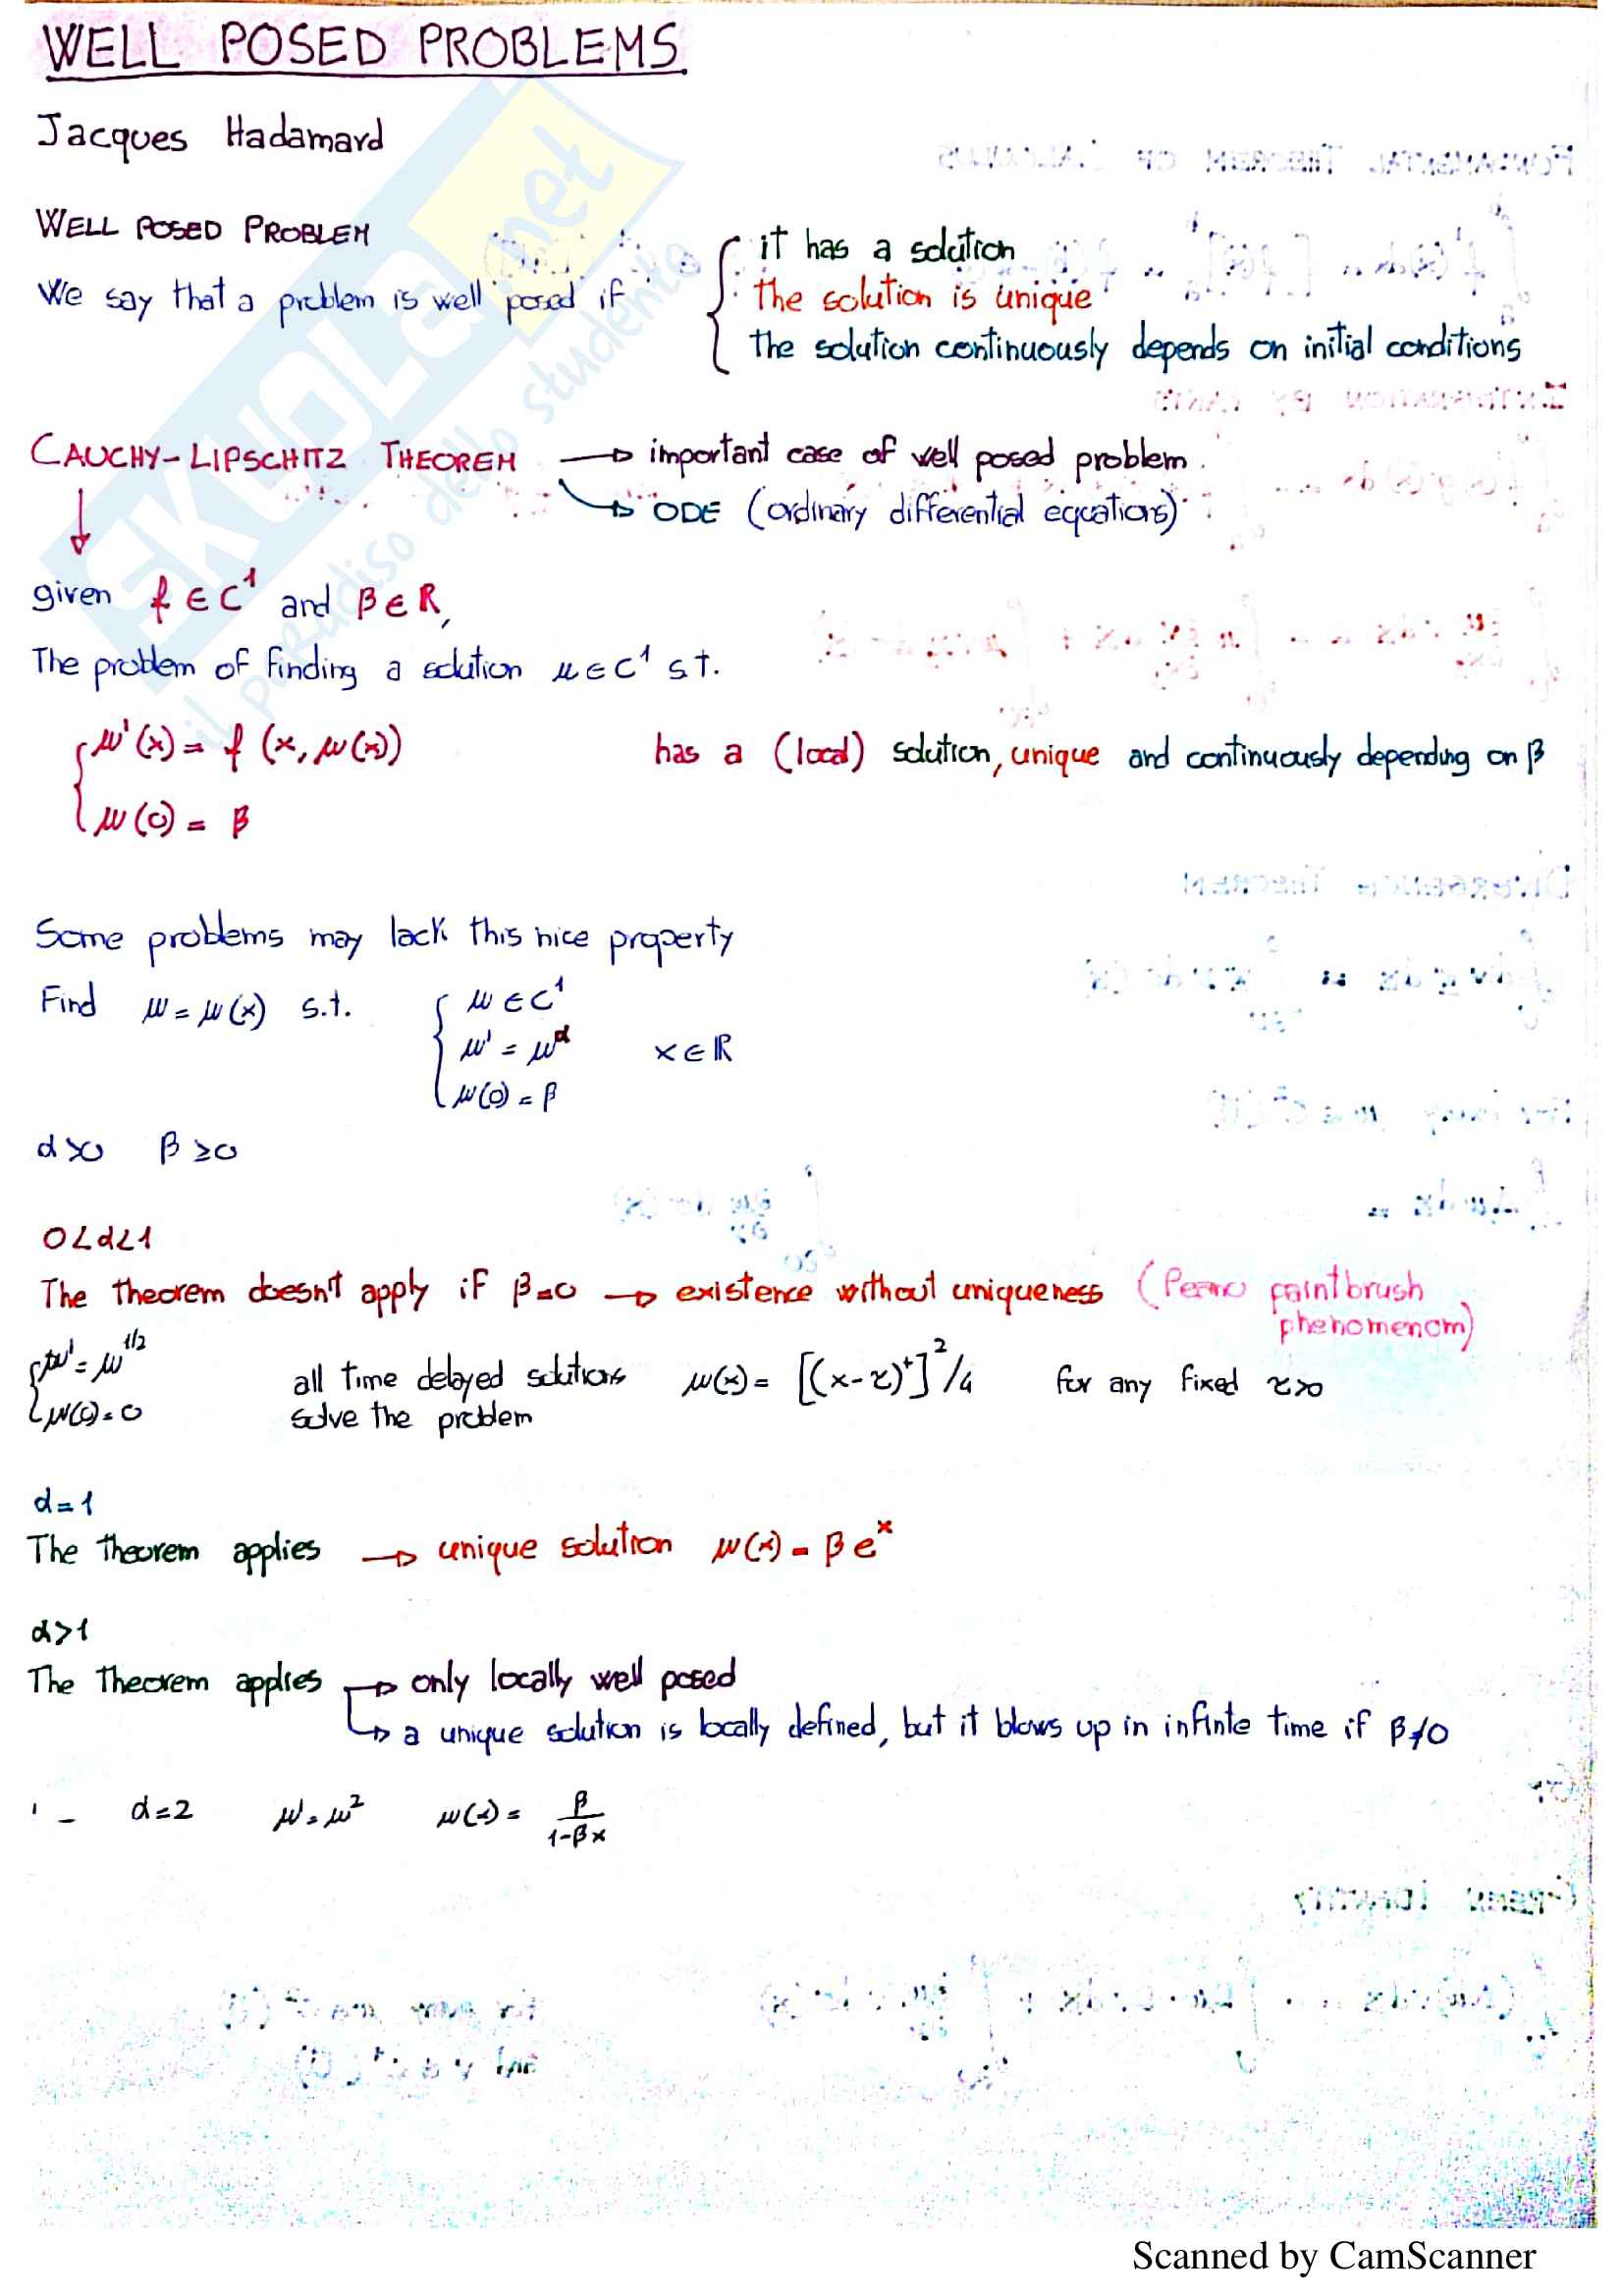 WELL POSED PROBLEMS
Jacques Hadamard
WELL POSED PROBLEM
We say that a problem is well posed if { it has a solution
the solution is unique
the solution continuously depends on initial conditions
CAUCHY-LIPSCHITZ THEOREM → important case of well posed problem.
↳ ODE (ordinary differential equations)
↓
given f ∈ C¹ and β ∈ ℝ,
The problem of finding a solution u ∈ C¹ s.t.
{ u'(x) = f (x, u(x)) has a (local) solution, unique and continuously depending on β
u(0) = β
Some problems may lack this nice property
Find u = u(x) s.t. { u ∈ C¹
u' = u^α x ∈ ℝ
u(0) = β
α>0 β ≥0
0<α<1
The theorem doesn't apply if β=0 → existence without uniqueness (
paintbrush
phenomenom)
{ u' = u^1/2
u(0)=0
all time delayed solutions u(x) = [(x-τ)⁺]²/4 for any fixed τ>0
solve the problem
α=1
The theorem applies → unique solution u(x) = β e^x
α>1
The theorem applies → only locally well posed
↳ a unique solution is locally defined, but it blows up in infinte time if β≠0
α=2 u' = u² u(x) = β/(1-βx)
SKUOLA.net
il paradiso dello studente
Scanned by CamScanner